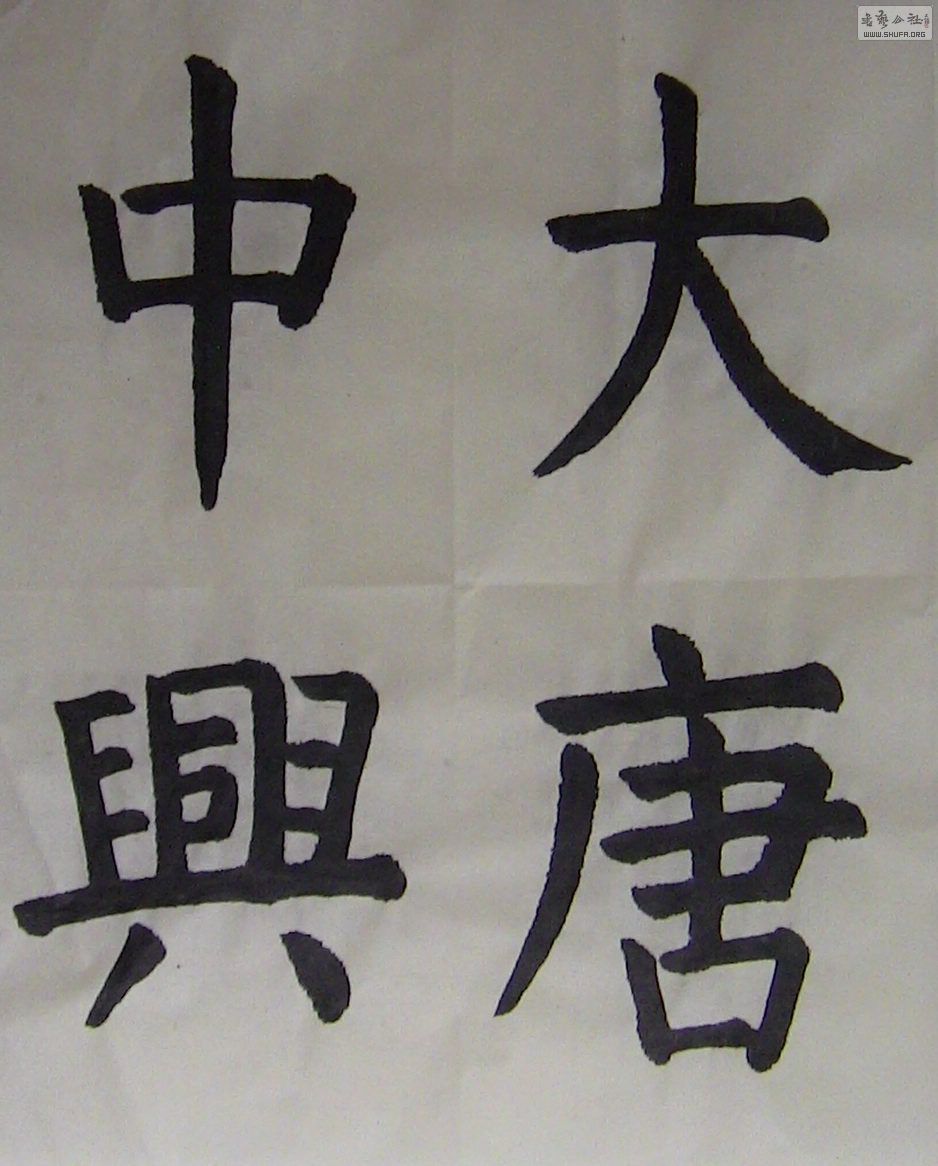 大唐
中興
書藝公社
WWW.SHUFA.ORG